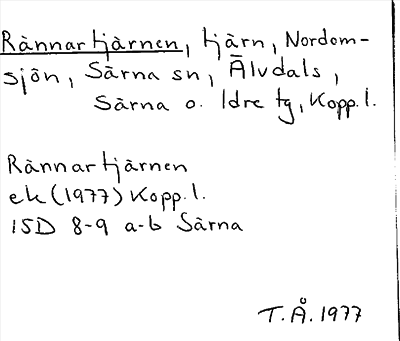 Rännartjärnen, tjärn, Nordom-
sjön, Särna sn, Älvdals,
Särna o. Idre tg, Kopp.l.
Rännartjärnen
ek (1977) Kopp.l.
15D 8-9 a-b Särna
T.Å. 1977